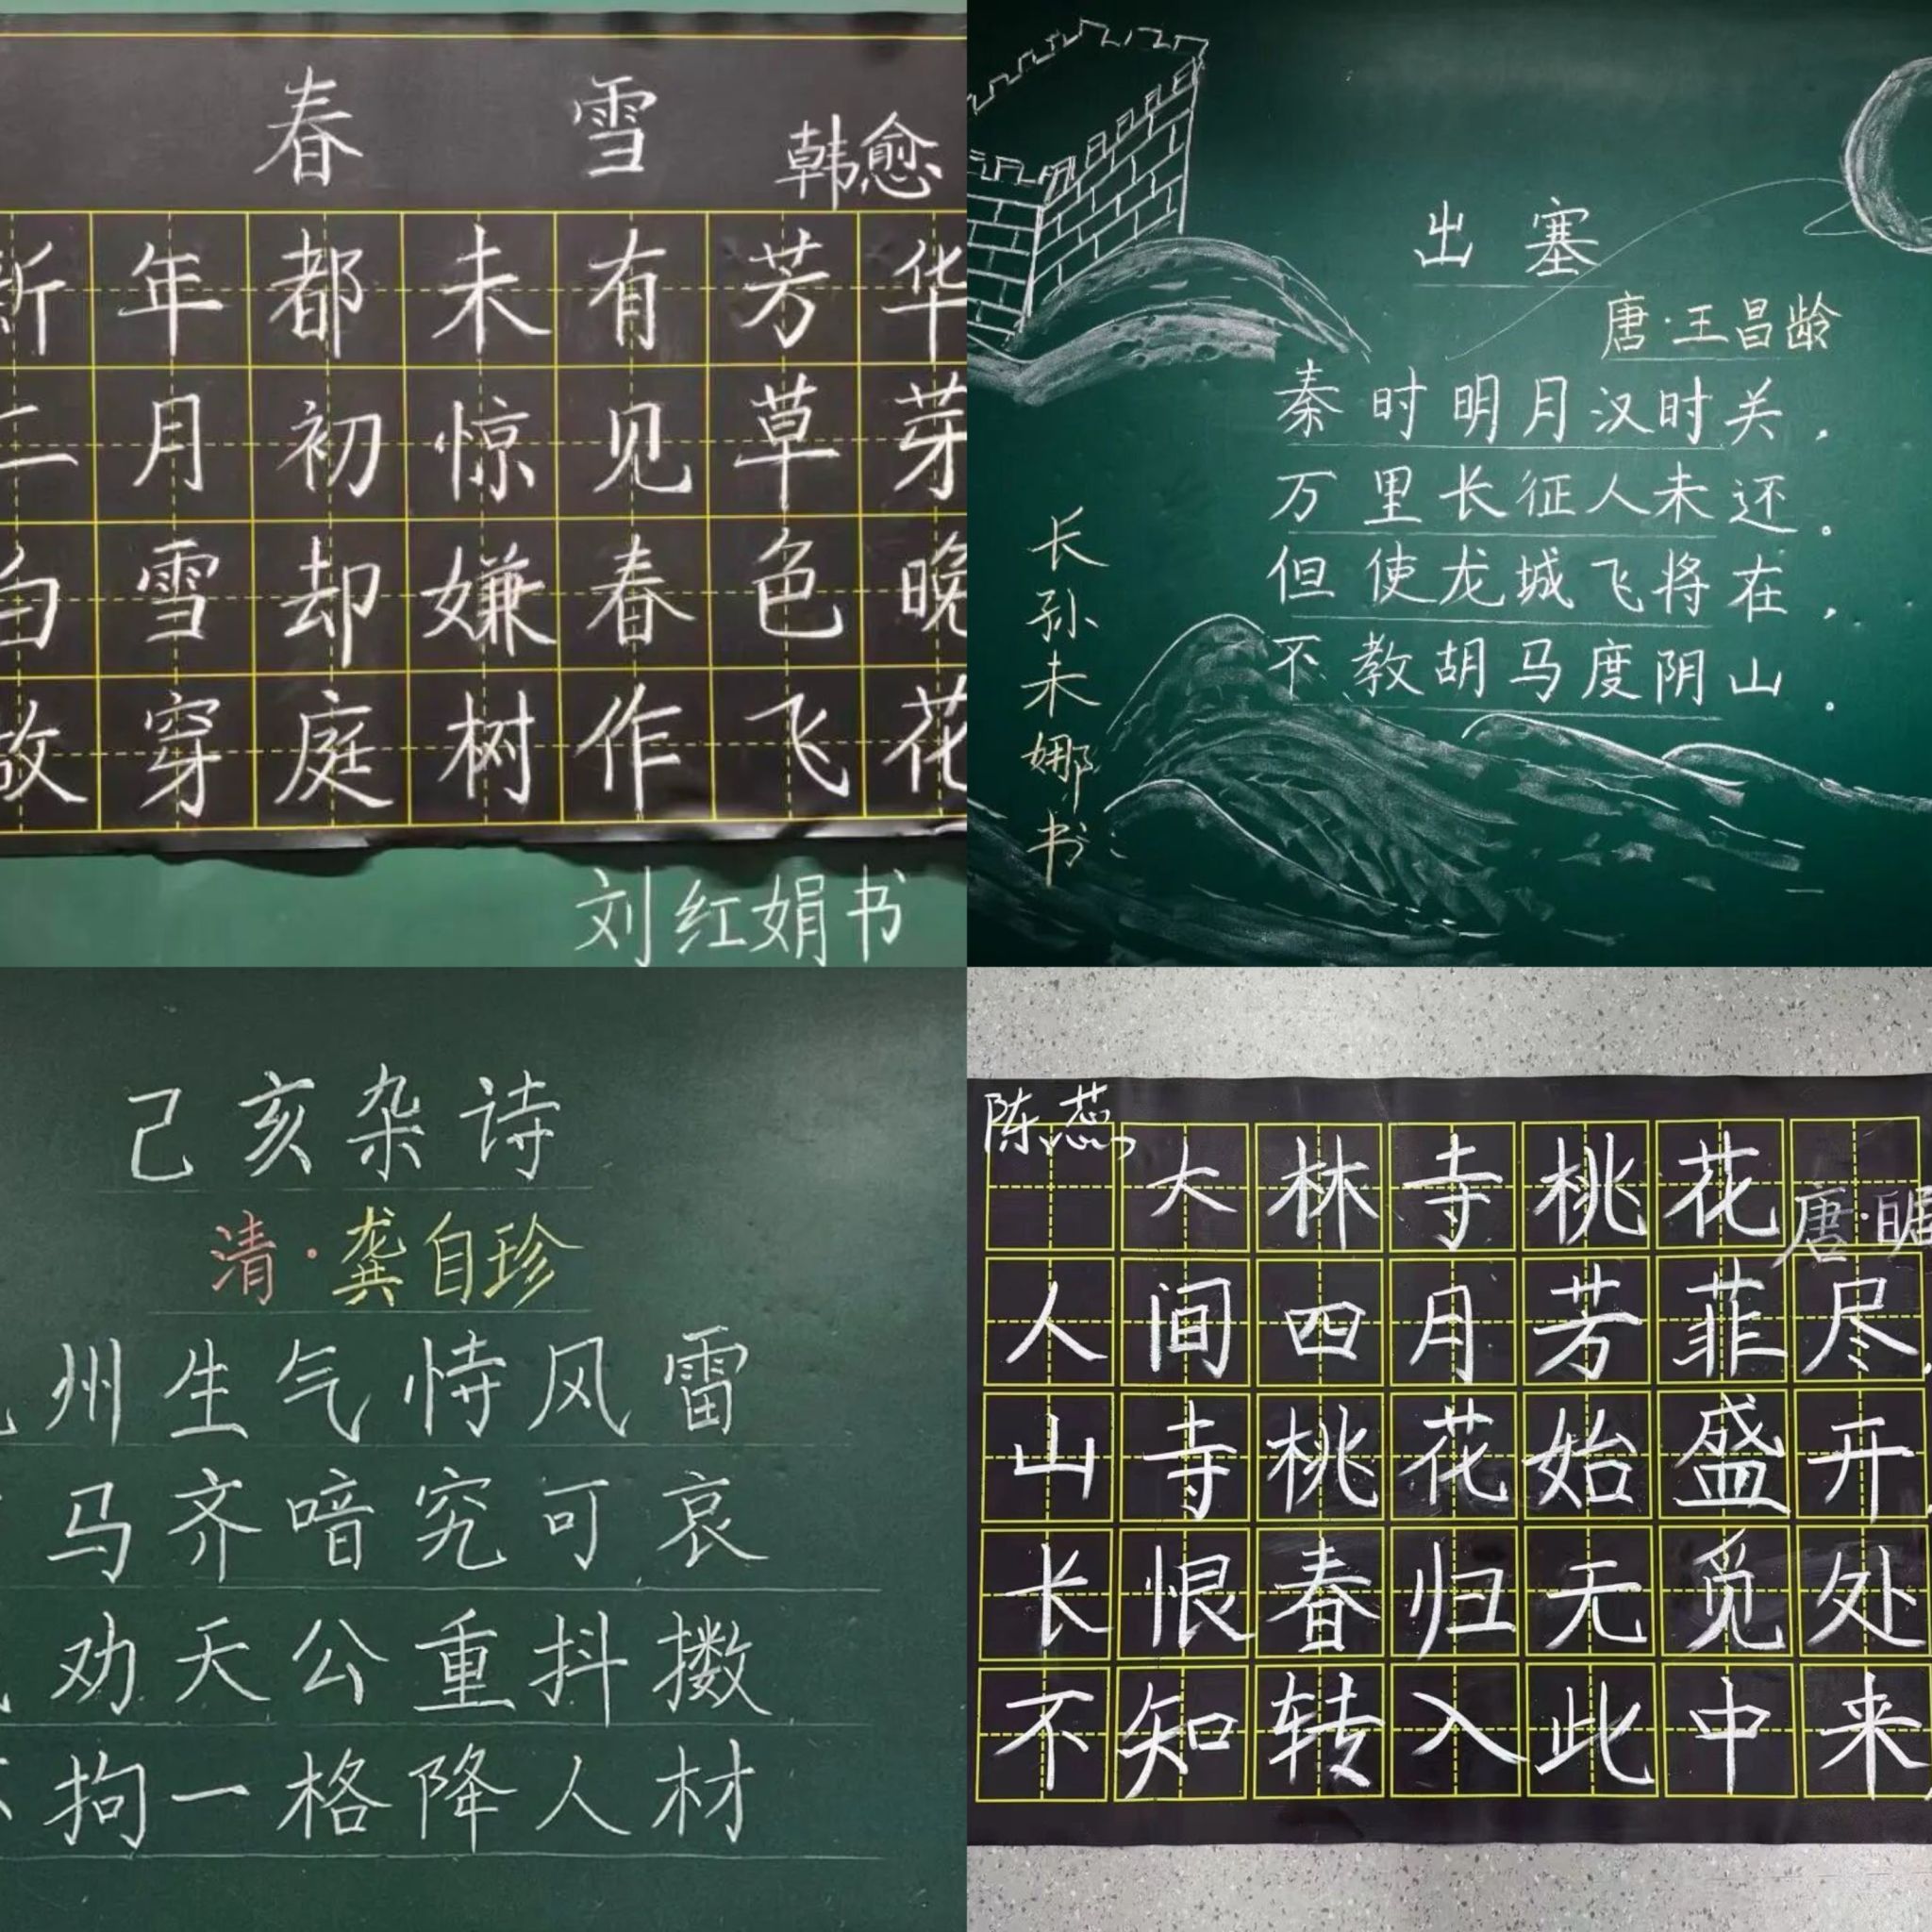 春雪
韩愈
新年都未有芳华
二月初惊见草芽
白雪却嫌春色晚
故穿庭树作飞花
刘红娟书
出塞
唐·王昌龄
秦时明月汉时关，
万里长征人未还。
但使龙城飞将在，
不教胡马度阴山。
长孙未娜书
己亥杂诗
清·龚自珍
州生气恃风雷
马齐喑究可哀
劝天公重抖擞
拘一格降人材
陈蕊
大林寺桃花
唐·
人间四月芳菲尽，
山寺桃花始盛开
长恨春归无觅处
不知转入此中来